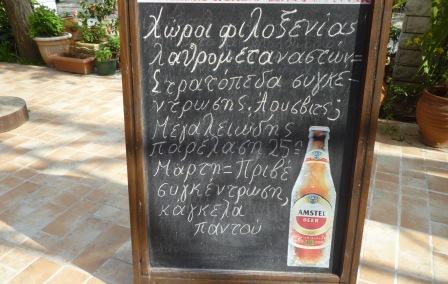 Χώροι φιλοξενίας
λαθρομεταναστών=
Στρατόπεδα συγκέ-
ντρωσης. Άουσβιτς;
Μεγαλειώδης
παρέλαση 25ης
Μάρτη=Πριβέ
συγκέντρωση,
κάγκελα
παντού
AMSTEL
BEER